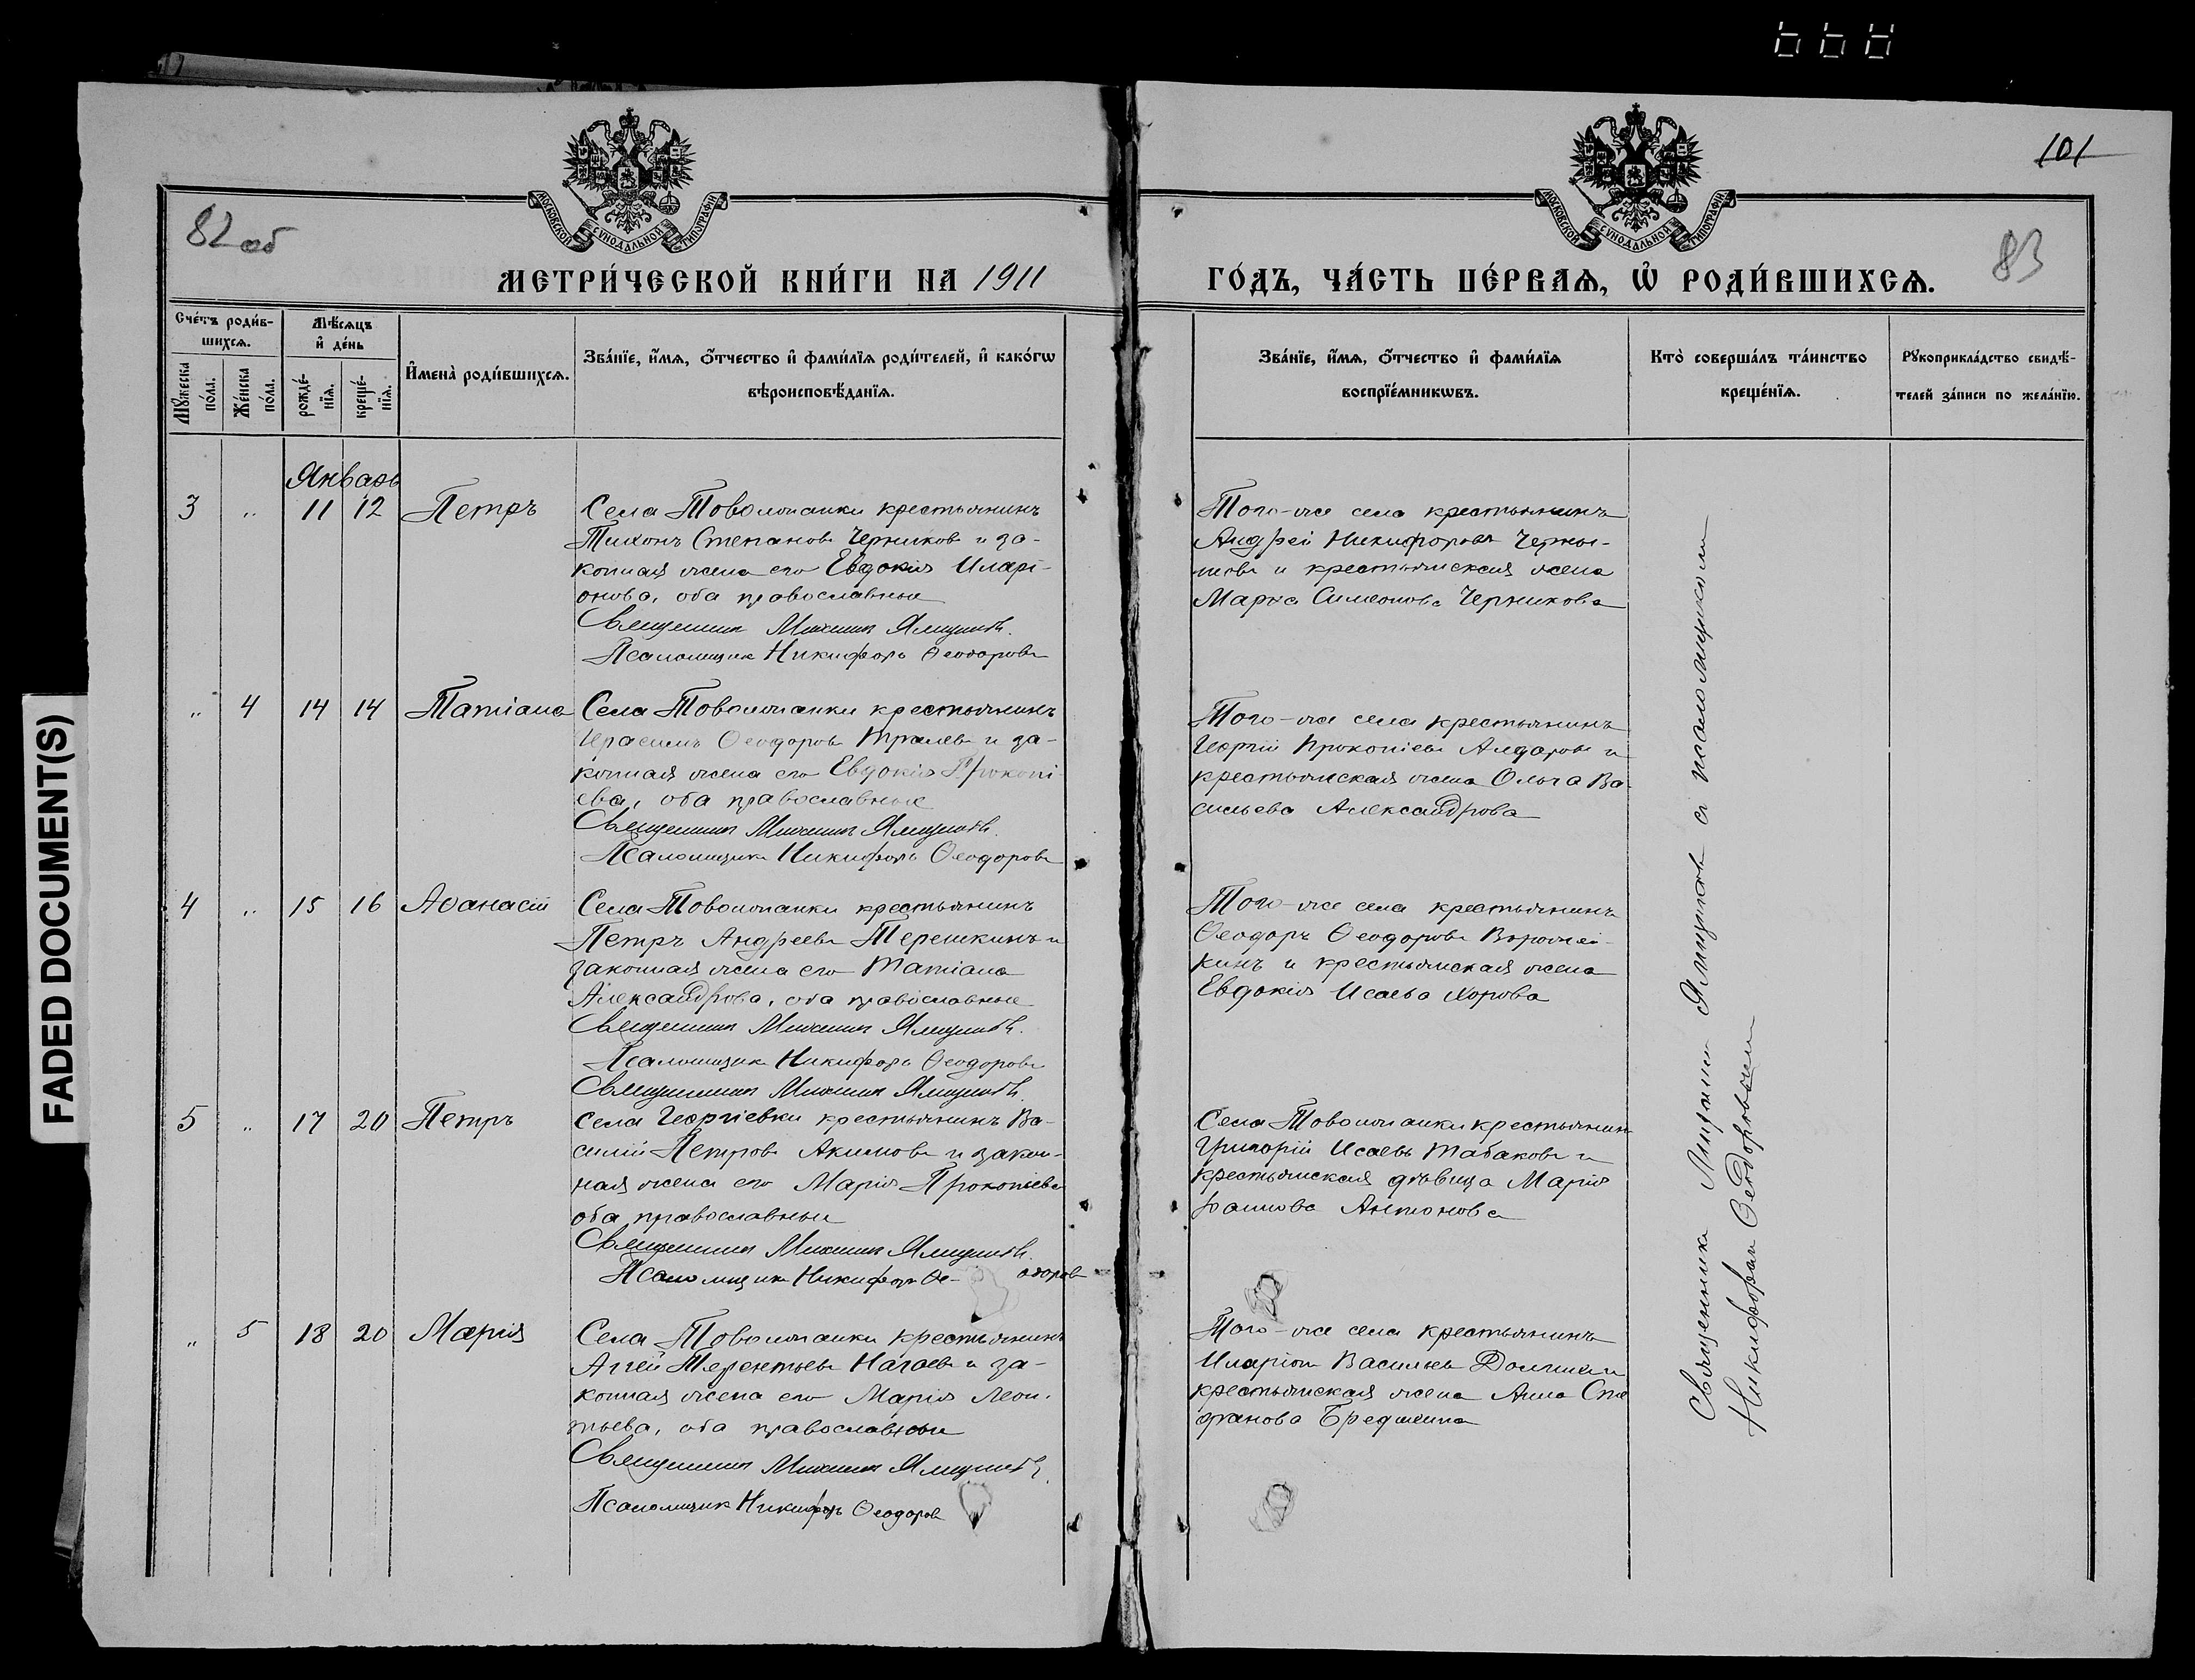 101
82 об
83
МОСКОВСКОЙ СѴНОДАЛЬНОЙ ТИПОГРАФІИ
МОСКОВСКОЙ СѴНОДАЛЬНОЙ ТИПОГРАФІИ
МЕТРИ́ЧЕСКОЙ КНИ́ГИ НА 1911
ГО́ДЪ, ЧА́СТЬ ПЕ́РВАѦ, Ѽ РОДИ́ВШИХСѦ.
Сче́тъ роди́в-
шихсѧ.
Мѣ́сѧцъ
и҆ де́нь
Мꙋ́жеска
по́ла.
Же́нска
по́ла.
рожде́-
нїѧ.
креще́-
нїѧ.
И҆мена̀ роди́вшихсѧ.
Зва́нїе, и҆́мѧ, о҆́тчество и҆ фами́лїѧ роди́телей, и҆ како́гѡ
вѣроисповѣ́данїѧ.
Зва́нїе, и҆́мѧ, о҆́тчество и҆ фами́лїѧ
воспрїе́мникѡвъ.
Кто̀ соверша́лъ та́инство
креще́нїѧ.
Рꙋкоприкла́дство свидѣ́-
телей за́писи по жела́нїю.
Январь
3 „ 11 12 Петръ
Села Товолжанки крестьянинъ
Тихонъ Степановъ Черников и за-
конная жена его Евдокія Иларі-
онова, оба православные
Священникъ Михаилъ Ямщиковъ.
Псаломщикъ Никифоръ Ѳеодоровъ
Того-же села крестьянинъ
Андрей Никифоровъ Черны-
шовъ и крестьянская жена
Марѳа Симеонова Черникова
„ 4 14 14 Татіана
Села Товолжанки крестьянинъ
Герасимъ Ѳеодоровъ и за-
конная жена его Евдокія Прокопі-
ева, оба православные
Священникъ Михаилъ Ямщиковъ.
Псаломщикъ Никифоръ Ѳеодоровъ
Того-же села крестьянинъ
Георгій Прокопіевъ и
крестьянская жена Ольга Ва-
сильева Александрова
4 „ 15 16 Аѳанасій
Села Товолжанки крестьянинъ
Петръ Андреевъ Терешкинъ и
законная жена его Татіана
Александрова, оба православные
Священникъ Михаилъ Ямщиковъ.
Псаломщикъ Никифоръ Ѳеодоровъ
Священникъ Михаилъ Ямщиковъ.
Того-же села крестьянинъ
Ѳеодоръ Ѳеодоровъ Воротней-
кинъ и крестьянская жена
Евдокія Исаева
5 „ 17 20 Петръ
Села Георгіевки крестьянинъ Ва-
силій Петровъ Акимовъ и закон-
ная жена его Марія Прокопіева
оба православные
Священникъ Михаилъ Ямщиковъ.
Псаломщикъ Никифоръ Ѳе- одоровъ
Села Товолжанки крестьянин
Григорій Исаевъ Табаковъ и
крестьянская дѣвица Марія
Антонова
„ 5 18 20 Марія
Села Товолжанки крестьянинъ
Аггей Терентьевъ Нагаевъ и за-
конная жена его Марія Леон-
тьева, оба православные
Священникъ Михаилъ Ямщиковъ.
Псаломщикъ Никифоръ Ѳеодоров
Того-же села крестьянинъ
Иларіон Васильев и
крестьянская жена Анна Сте
фанова
Священникъ Михаилъ Ямщиковъ съ псаломщикомъ
Никифоромъ Ѳеодоровымъ
FADED DOCUMENT(S)